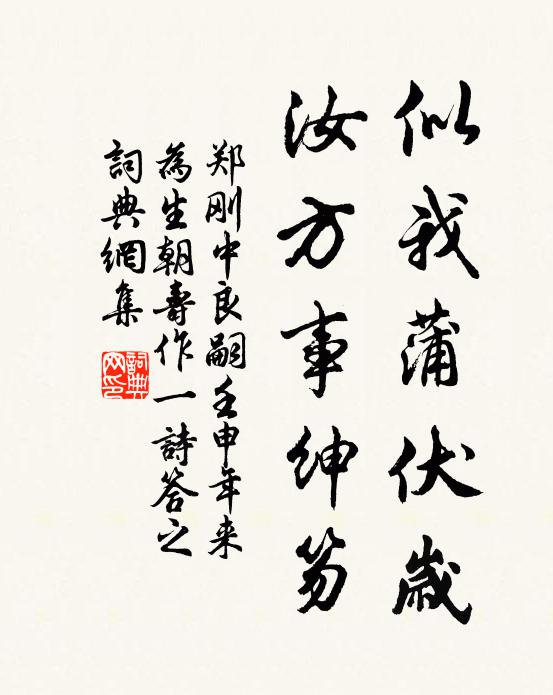 似我蒲伏歲
汝方事紳笏
郑刚中良嗣壬申年来
為生朝壽作一詩答之
詞典網集
詞典
网印